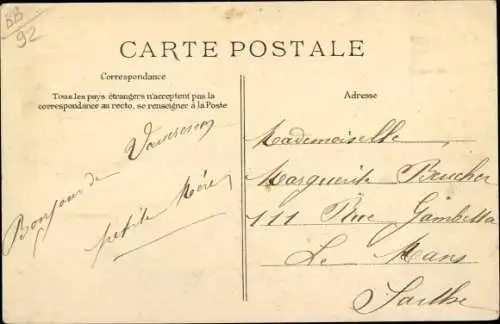 BB
92
CARTE POSTALE
Correspondance
Tous les pays étrangers n'acceptent pas la
correspondance au recto, se renseigner à la Poste
Bonjour de Vaucresson
petite Mère
Adresse
Mademoiselle
Marguerite Beucher
111 Rue Gambetta
Le Mans
Sarthe